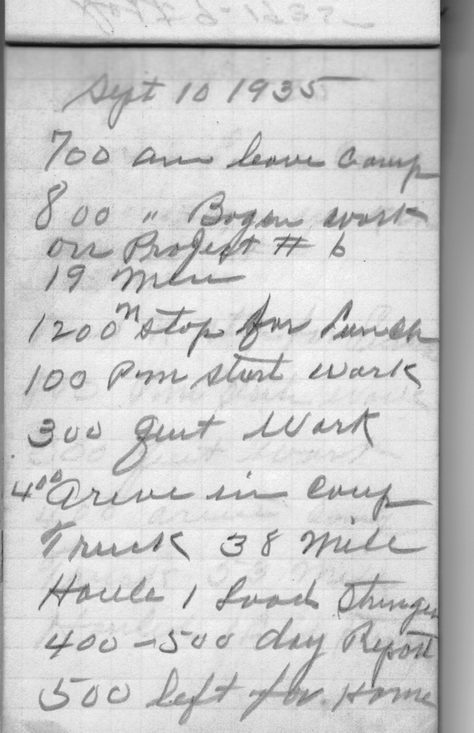 Sept 10 1935
700 am leave Camp
800 " Bogen work
on Project # 6
19 Men
1200 n stop for Lunch
100 Pm start work
300 quit Work
400 Arive in Camp
Truck 38 Mile
Houle 1 Load Stringer
400-500 day Report
500 left for Home